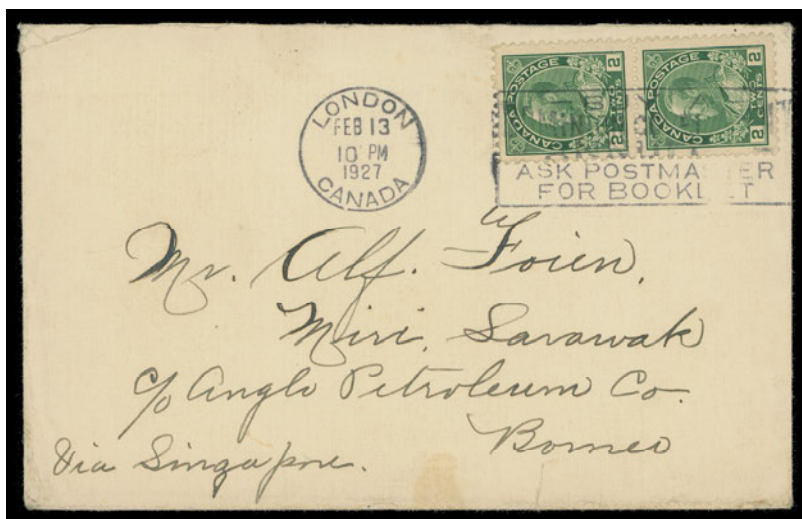 LONDON
FEB 13
10 PM
1927
CANADA
CANADA POSTAGE
2 TWO CENTS 2
CANADA POSTAGE
2 TWO CENTS 2
ASK POSTMA ER
FOR BOOKL T
Mr. Alf. Foien,
Miri, Sarawak
c/o Anglo Petroleum Co.
Borneo
Via Singapore.